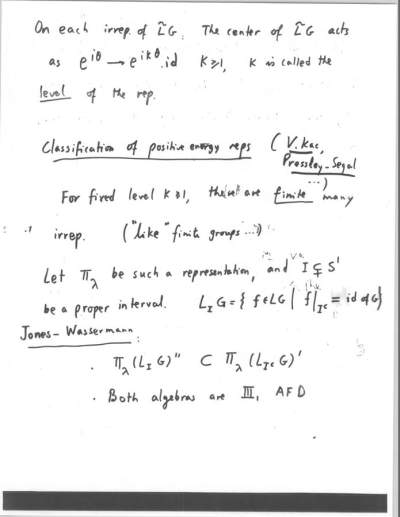 On each irrep. of L̃G, The center of L̃G acts
as e^{iθ} → e^{ikθ}.id K≥1, K is called the
level of the rep.
Classification of positive energy reps (V. Kac,
Pressley-Segal
...)
For fixed level K≥1, there are finite many
irrep. ("like" finite groups ...)
Let π_λ be such a representation, and I ⊊ S'
be a proper interval. L_I G = { f ∈ LG | f|_{I^c} = id of G}
Jones-Wassermann:
. π_λ(L_I G)'' ⊂ π_λ(L_{I^c} G)'
. Both algebras are III, AFD